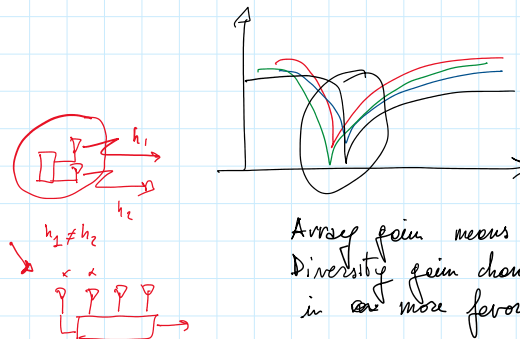 h₁
h₂
h₁ ≠ h₂
Array gain means
Diversity gain chan
in more favor